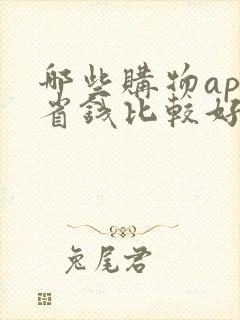 哪些購物ap
省錢比較好
兔尾君